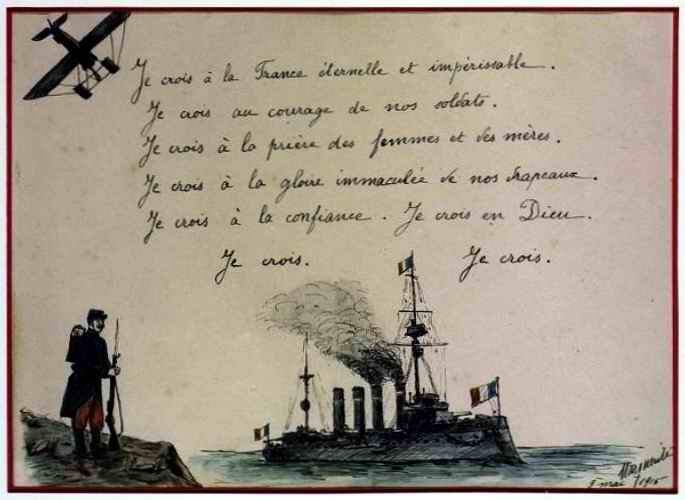 Je crois à la France éternelle et impérissable.
Je crois au courage de nos soldats.
Je crois à la prière des femmes et des mères.
Je crois à la gloire immaculée de nos drapeaux.
Je crois à la confiance. Je crois en Dieu.
Je crois. Je crois.
mai 1915